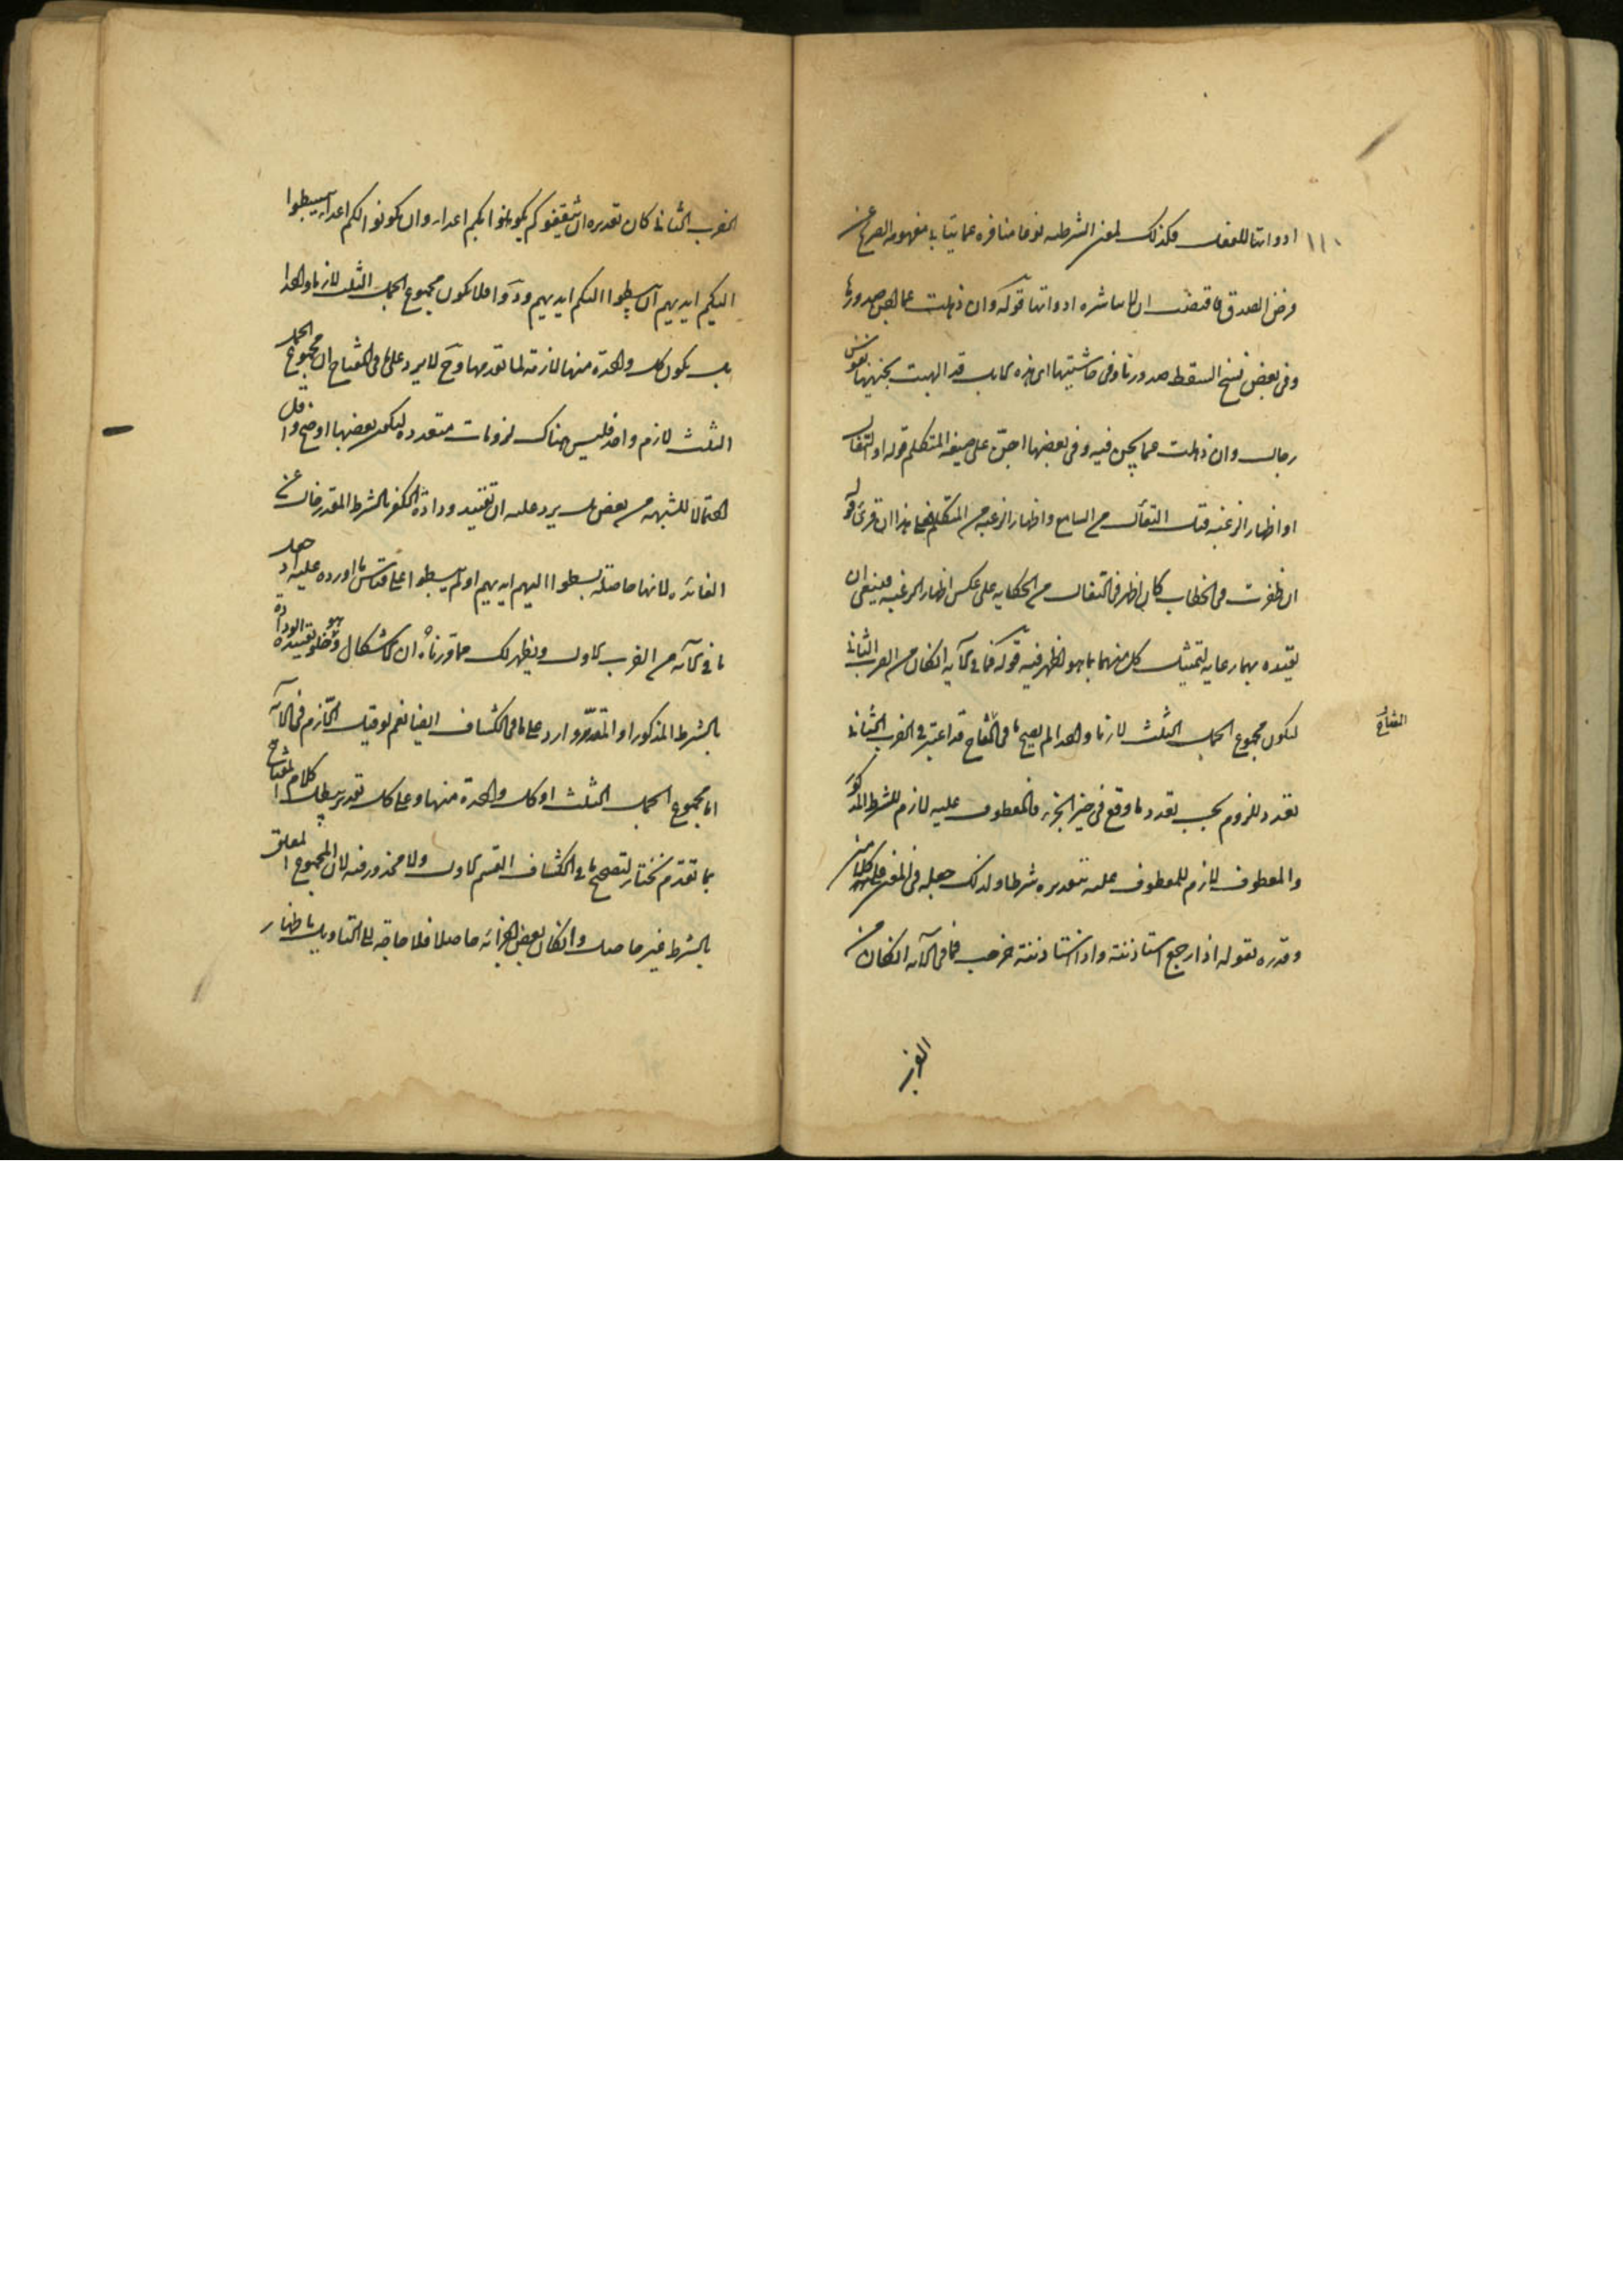 ١١٠
ادواتها للفعل فكذلك لمعنى الشرطيه نوعا منافره عما يتأبى مفهومه الصريح عن
فرض الصدق فاقتضت ان لا يباشره ادواتها قوله وان ذهلت عما اجن صدورها
وفى بعض نسخ السقط صدورنا وفى حاشيتها اى هذه الابل قد الهبت بحنينها نفوس
رجال وان ذهلت عما يجن فيه وفى بعضها اجن على صيغه المتكلم قوله او التفال
او اظهار الرغبه قيل التفأل من السامع واظهار الرغبه من المتكلم هذا ان قرئ قوله
ان ظفرت فى الخطاب كان اظهر فى التفال من الحكايه على عكس اظهار الرغبه فينبغى ان
يقيده بهما رعايه لتمثيل كل منهما بما هو اظهر فيه قوله فما فى الآيه ان كان من الضرب الثانى
لكون مجموع الجمل الثلث لازما واحدا لم يصح ما فى المفتاح قد اعتبر فى الضرب الثانى
تعدد اللزوم بحسب تعدد ما وقع فى حيز الجزاء فالمعطوف عليه لازم للشرط المذكور
والمعطوف لازم للمعطوف عليه بتقديره شرطا ولذلك جعله فى المعنى كلامين
وقدره بقوله اذا رجع استاذنته واذا استاذنته خرجت فما فى الآيه ان كان من
الضرب
الضرب الثانى كان تقديره ان يثقفوكم يكونوا لكم اعداء وان يكونوا لكم اعداء يبسطوا
اليكم ايديهم وان يبسطوا اليكم ايديهم ودوا فلا يكون مجموع الجمل الثلث لازما واحدا
بل يكون كل واحدة منها لازمة لما تقدمها وح لا يرد على ما فى المفتاح ان مجموع الجمل
الثلث لازم واحد فليس هناك لزومات متعدده ليكون بعضها اوضح واقل
احتمالا للشبهه من بعض بل يرد عليه ان تقييد ودادة الكفر بالشرط المقدر خال عن
الفائده لانها حاصلة بسطوا اليهم ايديهم او لم يبسطوا على قياس ما اورده عليه اد جعل
ما فى الآيه من الضرب الاول ويظهر لك مما قررناه ان الاشكال وهو خلو تقييد الودادة
بالشرط المذكور او المقدر وارد على ما فى الكشاف ايضا نعم لو قيل اللازم فى الآيه
اما مجموع الجمل الثلث او كل واحدة منها وعلى كل تقدير يبطل كلام المفتاح
بما تقدم نختار لتصحيح ما فى الكشاف القسم الاول ولا محذور فيه لان المجموع المعلق
بالشرط غير حاصل وان كان بعض اجزائه حاصلا فلا حاجة الى التاويل باظهار